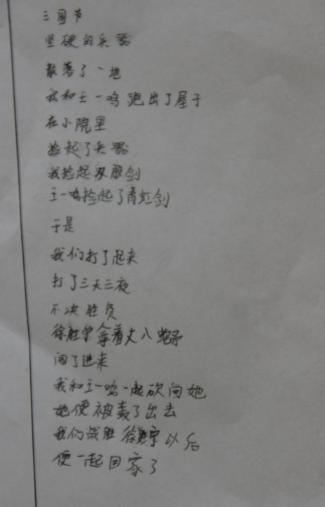 三国节
坚硬的兵器
散落了一地
我和王一鸣跑出了屋子
在小院里
捡起了兵器
我捡起双股剑
王一鸣捡起了青虹剑
于是
我们打了起来
打了三天三夜
不决胜负
徐拿着丈八蛇矛
闯了进来
我和王一鸣一起砍向她
她便被轰了出去
我们战胜徐以后
便一起回家了